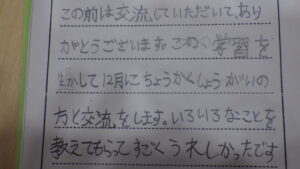 この前は交流していただいて、あり
がとうございます。この、学習を
生かして12月にちょうかくしょうがいの
方と交流をします。いろいろなことを
教えてもらってすごくうれしかったです